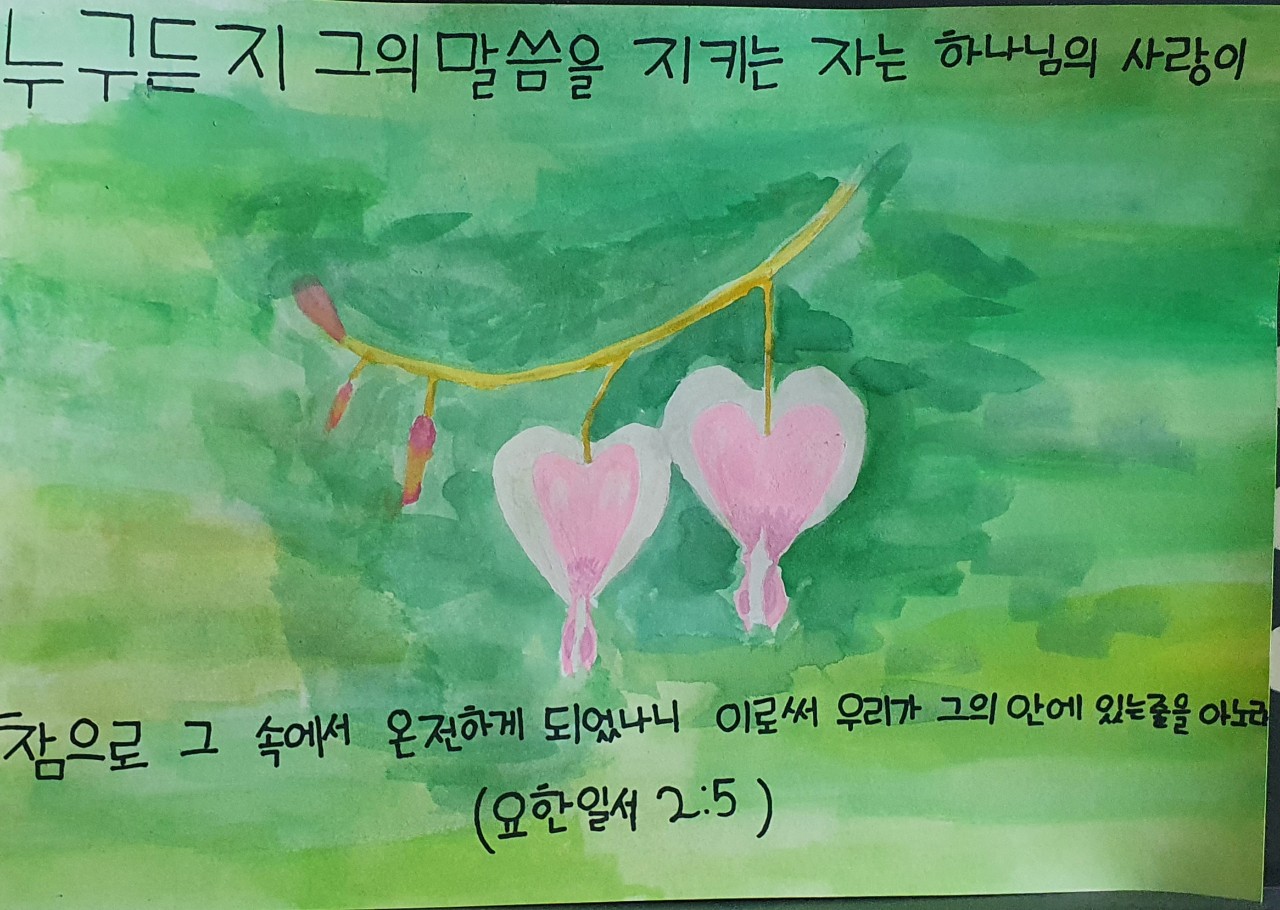 누구든지 그의 말씀을 지키는 자는 하나님의 사랑이
참으로 그 속에서 온전하게 되었나니 이로써 우리가 그의 안에 있는줄을 아노라
(요한일서 2:5)